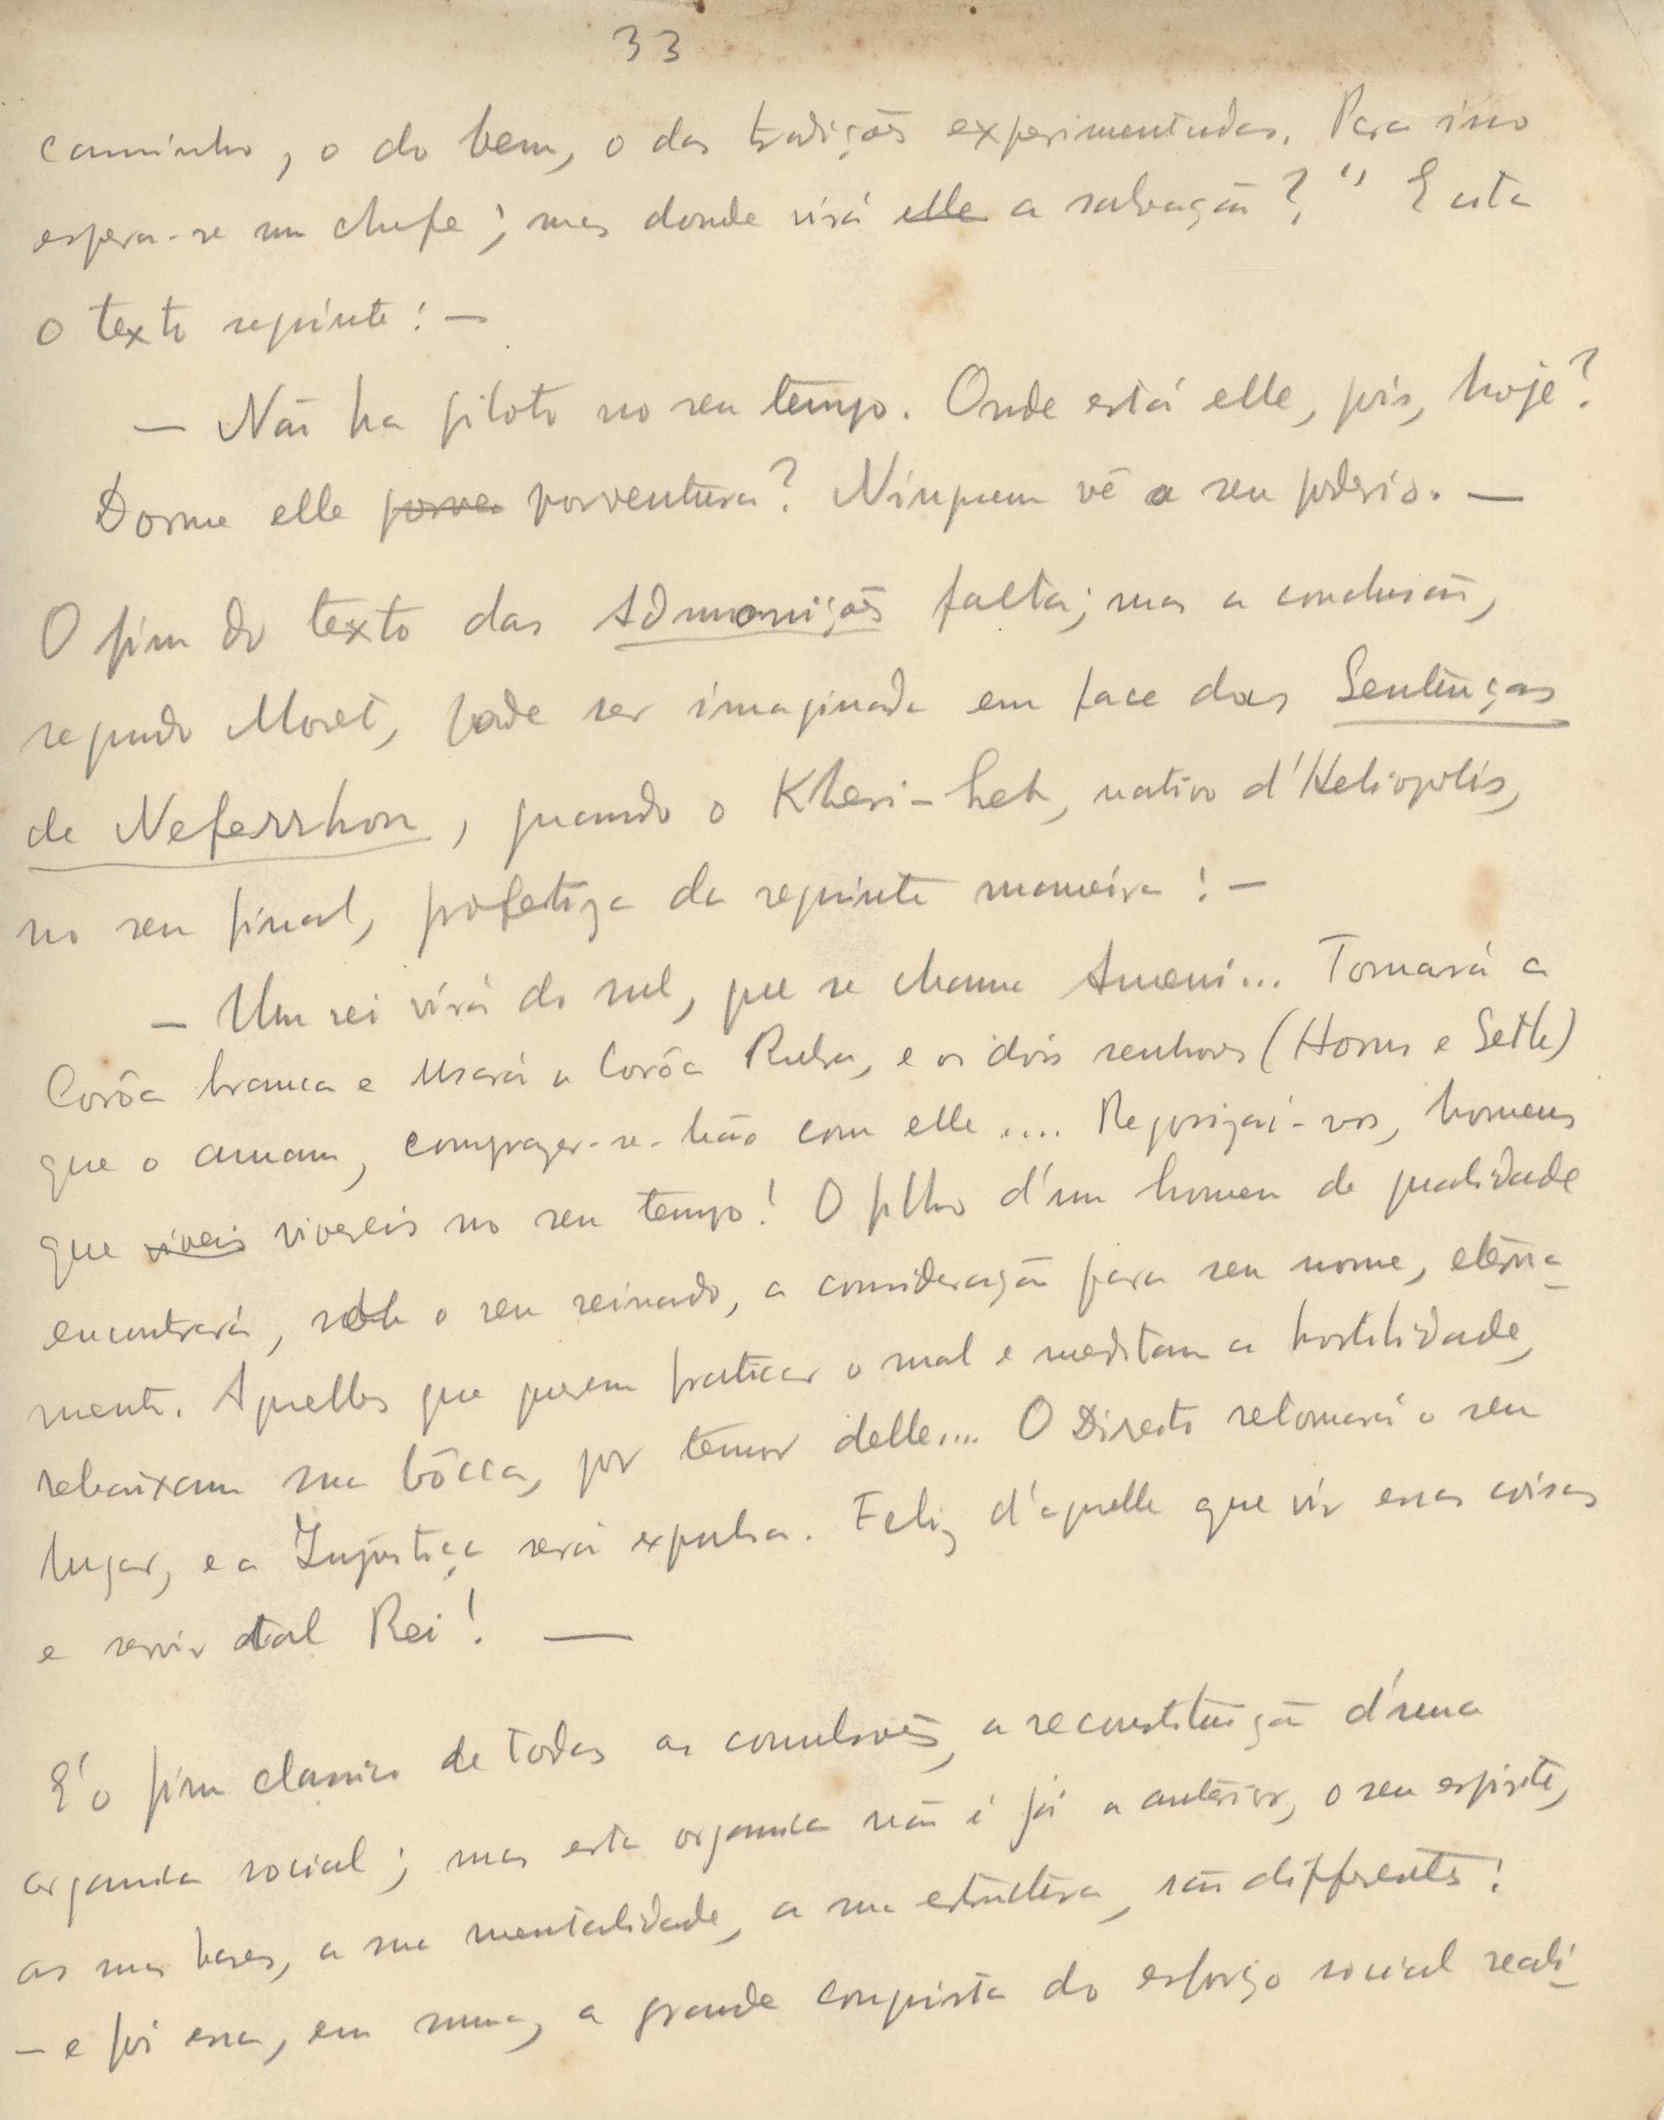 33
caminho, o do bem, o das tradições experimentadas. Para isso
espera-se um chefe; mas donde virá elle a salvação?" E esta
o texto seguinte: —
— Não ha piloto no seu tempo. Onde está elle, pois, hoje?
Dorme elle porve porventura? Ninguem vê o seu poderio. —
O fim do texto das Admonições falta; mas a conclusão,
segundo Moret, pode ser imaginada em face das Sentenças
de Neferrhou, quando o Kheri-heb, nativo d'Heliopolis,
no seu final, profetiza da seguinte maneira: —
— Um rei virá do sul, que se chama Ameni... Tomará a
Corôa branca e usará a Corôa Rubra, e os dois senhores (Horus e Seth)
que o amam, comprazer-se-hão com elle.... Regosijai-vos, homens
que viveis vivereis no seu tempo! O filho d'um homem de qualidade
encontrará, sob o seu reinado, a consideração para seu nome, eterna-
mente. Aquelles que querem praticar o mal e meditam a hostilidade,
rebaixam sua bôcca, por temor delle.... O Direito retomará o seu
lugar, e a Injustiça será expulsa. Feliz d'aquelle que vir essas coisas
e servir tal Rei! —
E' o fim classico de todas as convulsões, a reconstituição d'uma
organica social; mas esta organica não é já a anterior, o seu espirito,
as suas bases, a sua mentalidade, a sua estructura, são differentes:
— e foi essa, em suma, a grande conquista do esforço social reali-